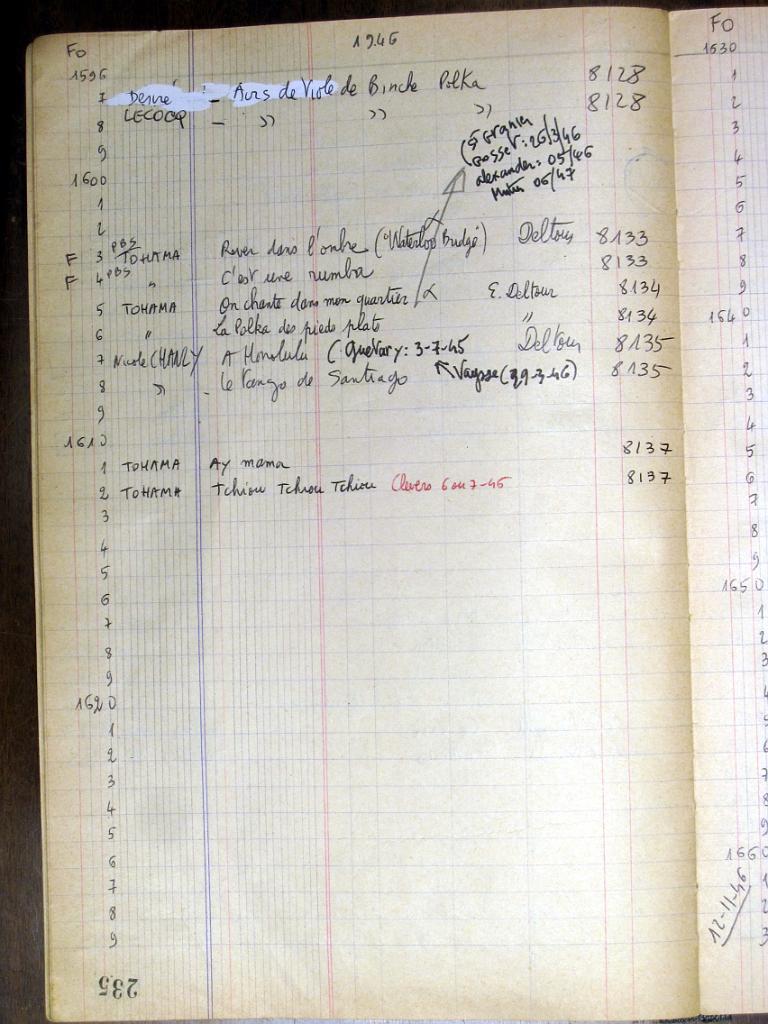 Fo 1946 Fo
1596 1630
7 Désiré - Airs de Viole de Binche Polka 8128 1
8 LECOCQ - " " " 8128 2
9 3
1600 4
(St Granier
Gosset: 26/3/46
alexander: 05/46
06/47
1 5
2 6
F 3 PBS TOHAMA Rever dans l'ombre (Waterloo Bridge) Deltour 8133 7
F 4 PBS " C'est une rumba 8133 8
5 TOHAMA On chante dans mon quartier α E. Deltour 8134 9
6 " La Polka des pieds plats " 8134 1640
7 Nicole CHARLY A Honolulu (Quevary: 3-7-45 Deltour 8135 1
8 " - Le Tango de Santiago ↖ Vaysse (29-3-46) 8135 2
9 3
1610 4
1 TOHAMA Ay mama 8137 5
2 TOHAMA Tchiou Tchiou Tchiou Clevers 6 ou 7-45 8137 6
3 7
4 8
5 9
6 1650
7 1
8 2
9 3
1620 4
1 5
2 6
3 7
4 8
5 9
6 1660
7 1
8 2
9 3
12-11-46
235